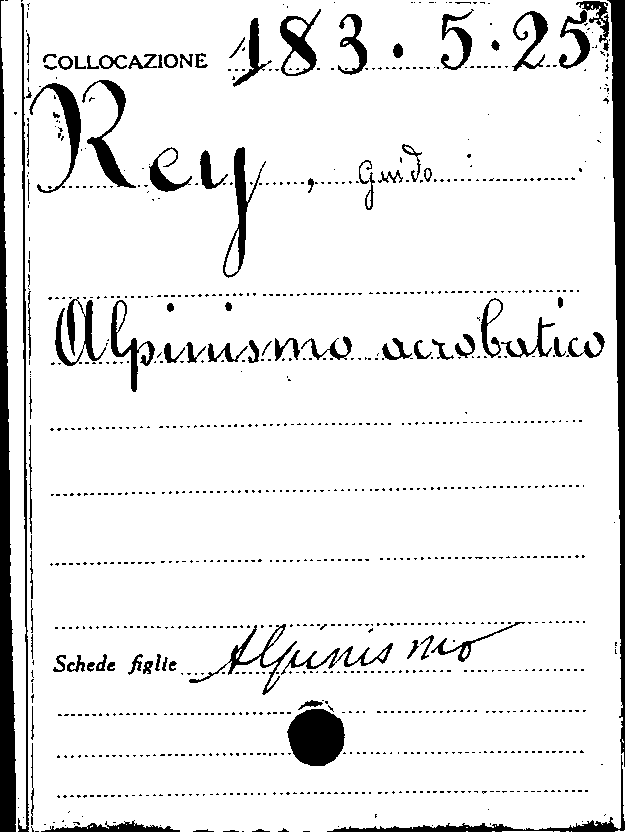 COLLOCAZIONE 183.5.25
Rey, Guido
Alpinismo acrobatico
Schede figlie Alpinismo